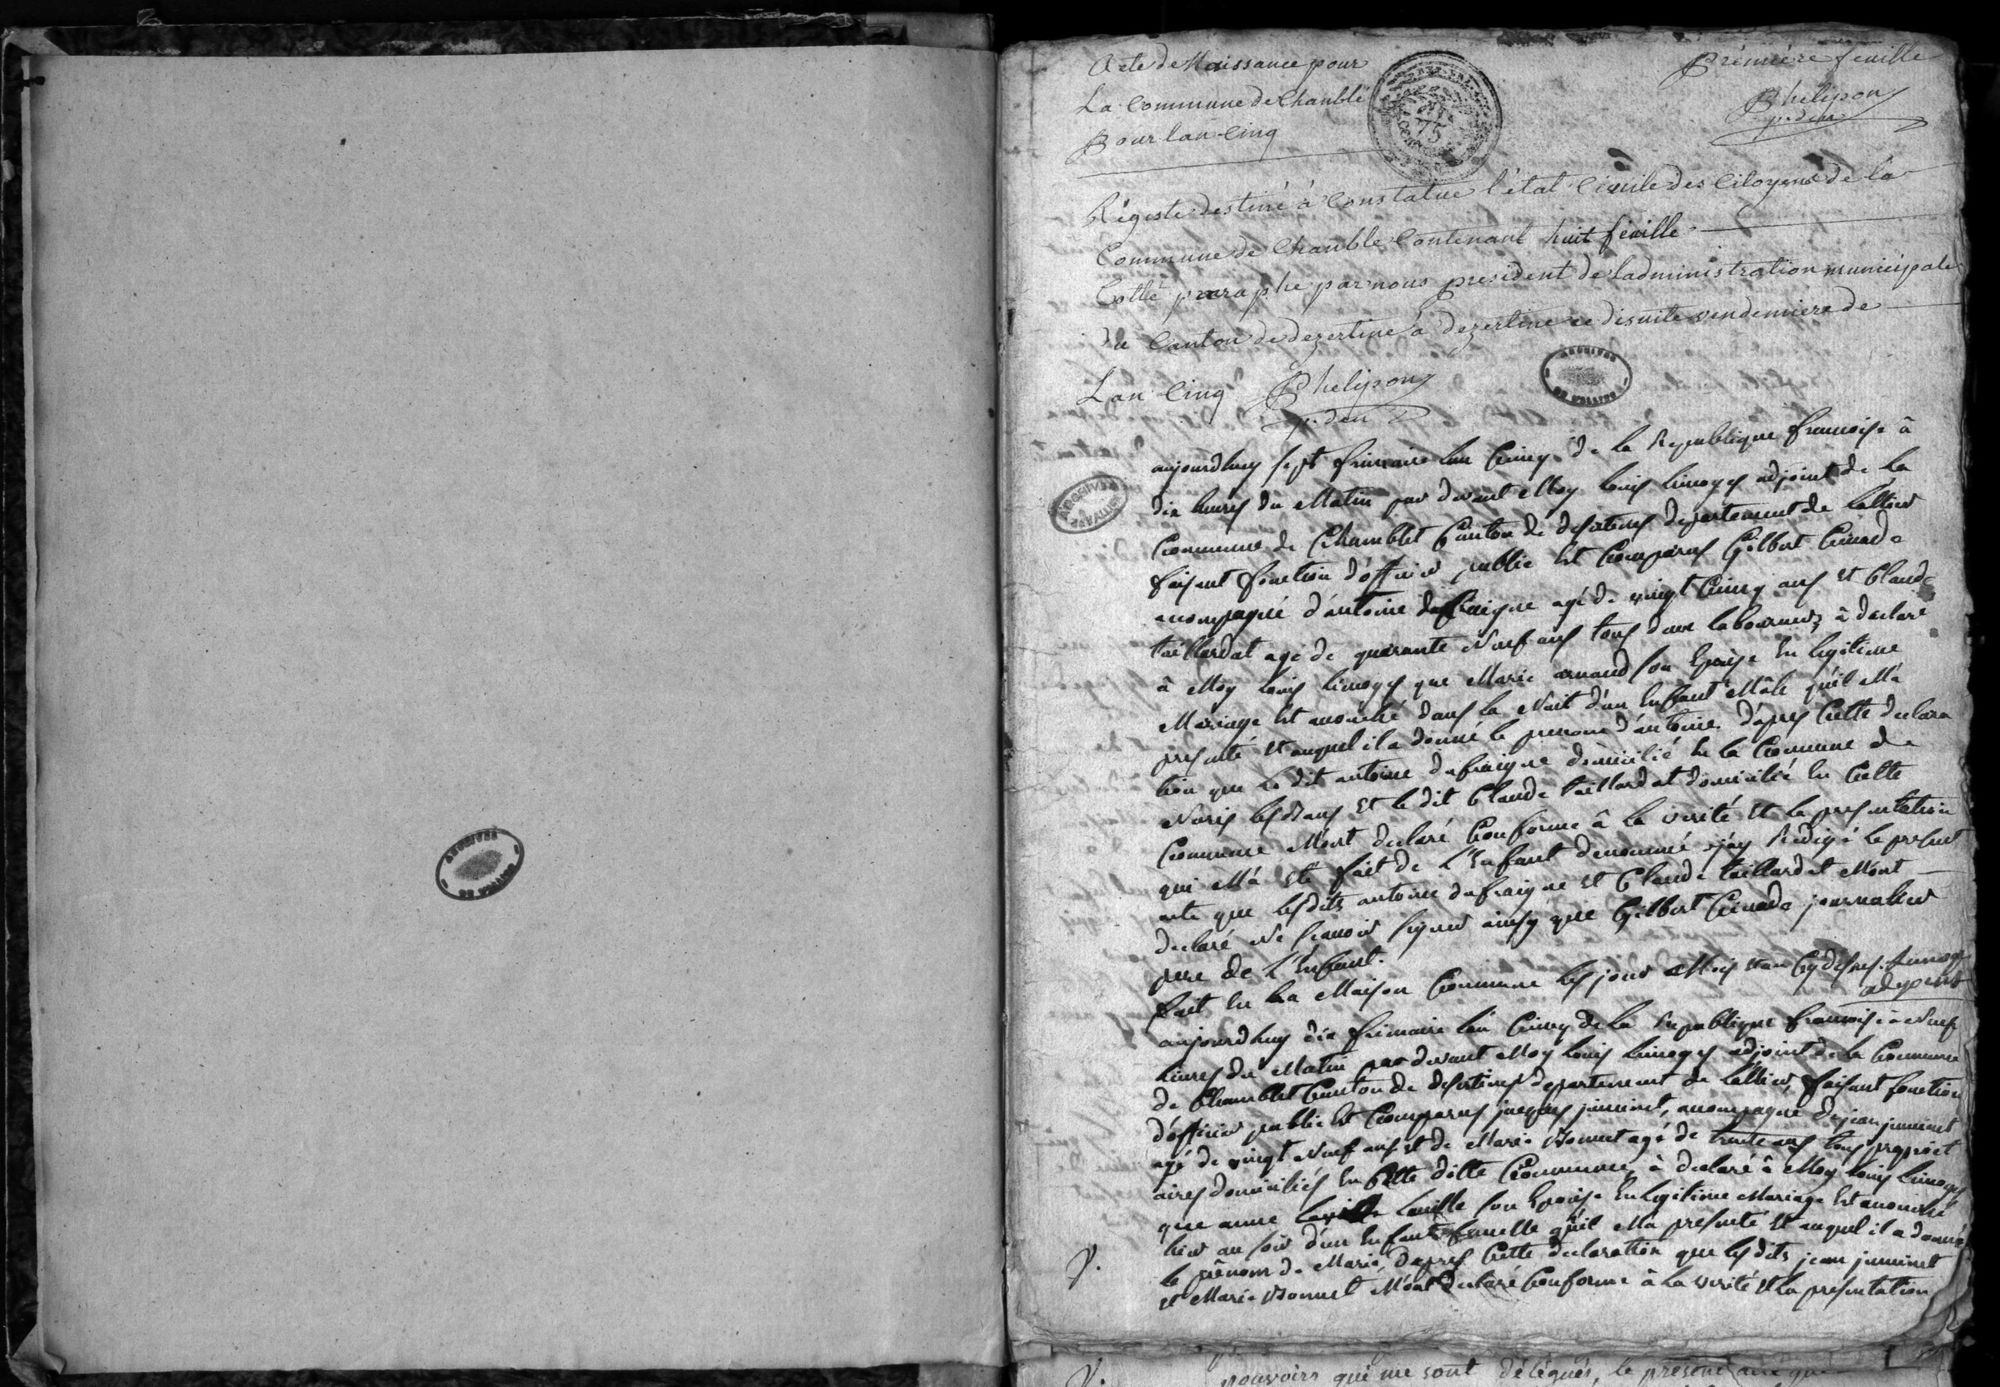 Acte de Naissance pour
La Commune de Chamblé
Pour lan Cinq
Prémière feuille
Phelipon
p.den
75
Régiste destiné à Constatue l'état Civile des Citoyens de la
Commune de Chamble Contenant huit feuille
Cotté paraphe par nous president de ladministration municipale
du Canton de dezertine à dezertine ce disuite vendemiere de
Lan Cinq Phelipon
p.den
ARCHIVES
DE L'ALLIER
aujourdhuy sept frimaire lan Cinq de la Republique francoise à
dix heures du Matin par devant Moy louis limoges adjoint de la
Commune de Chamblet Canton de desertines departement de lallier
faisant fonction d'officier public est Comparus Gilbert
acompagné d'antoine dufraigne agé de vingt Cinq ans et Claude
taillardat agé de quarante Neuf ans tous deux laboureurs, à declaré
à Moy louis limoges que Marie arnaud son Epouse En legitime
Mariage Est acouché dans la Nuit d'un Enfant Mâle qu'il M'a
presenté et auquel il a donné le prenom d'antoine. d'apres Cette declara
tion que le dit antoine dufraigne domicilié de la Commune de
Neris et le dit Claude taillardat domicilié En Cette
Commune M'ont declaré Conforme à la verité et la presentation
qui M'a Eté fait de l'Enfant denommé, j'ay Redigé le present
acte que lesdits antoine dufraigne et Claude taillardat M'ont
declaré Ne scavoir signer ainsy que Gilbert journalier
pere de l'Enfant.
fait En la Maison Commune les jour Mois et an Cy desus. Limoges
adjoint
aujourdhuy dix frimaire lan Cinq de la Republique francoise à Neuf
heures du Matin par devant Moy louis limoges adjoint de la Commune
de Chamblet Canton de desertines departement de lallier, faisant fonction
d'officier public Est Comparus jacques juminet, acompagné de jean juminet
agé de vingt Neuf ans et de Marie Bonnet agé de trente ans tous propriet
aires domiciliés En Cette ditte Commune, à declaré à Moy louis limoges
que anne laville son Epouse En legitime Mariage Est acouché
hier au soir d'un Enfant femelle qu'il M'a presenté Et auquel il a donné
le prénom de Marie, d'apres Cette declaration que lesdits jean juminet
et Marie Bonnet M'ont declaré Conforme à la verité Et la presentation
pouvoirs qui me sont délégués, le présent acte que